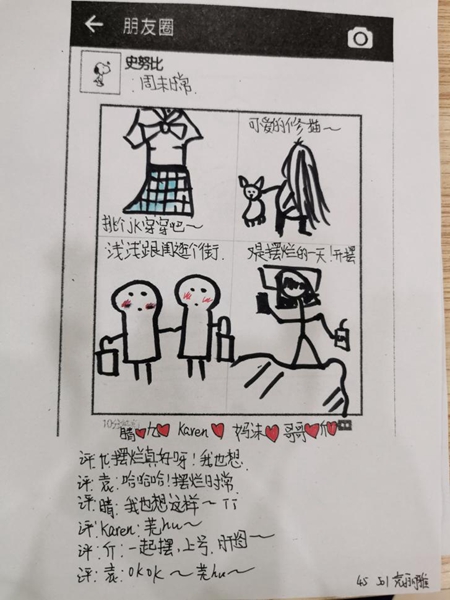 朋友圈
史努比
:周末日常.
可爱的修猫~
挑个jk穿穿吧~
浅浅跟周逛个街.
又是摆烂的一天!开摆
10分钟前
晴❤ 亿❤ Karen❤ 妈沫❤ 哥哥❤介❤
评:忆摆烂真好呀!我也想.
评:袁:哈哈哈!摆烂日常
评:晴:我也想这样~TT
评:Karen:芜hu~
评:介:一起摆,上号,肝图~
评:袁:OKOK~芜hu~
45